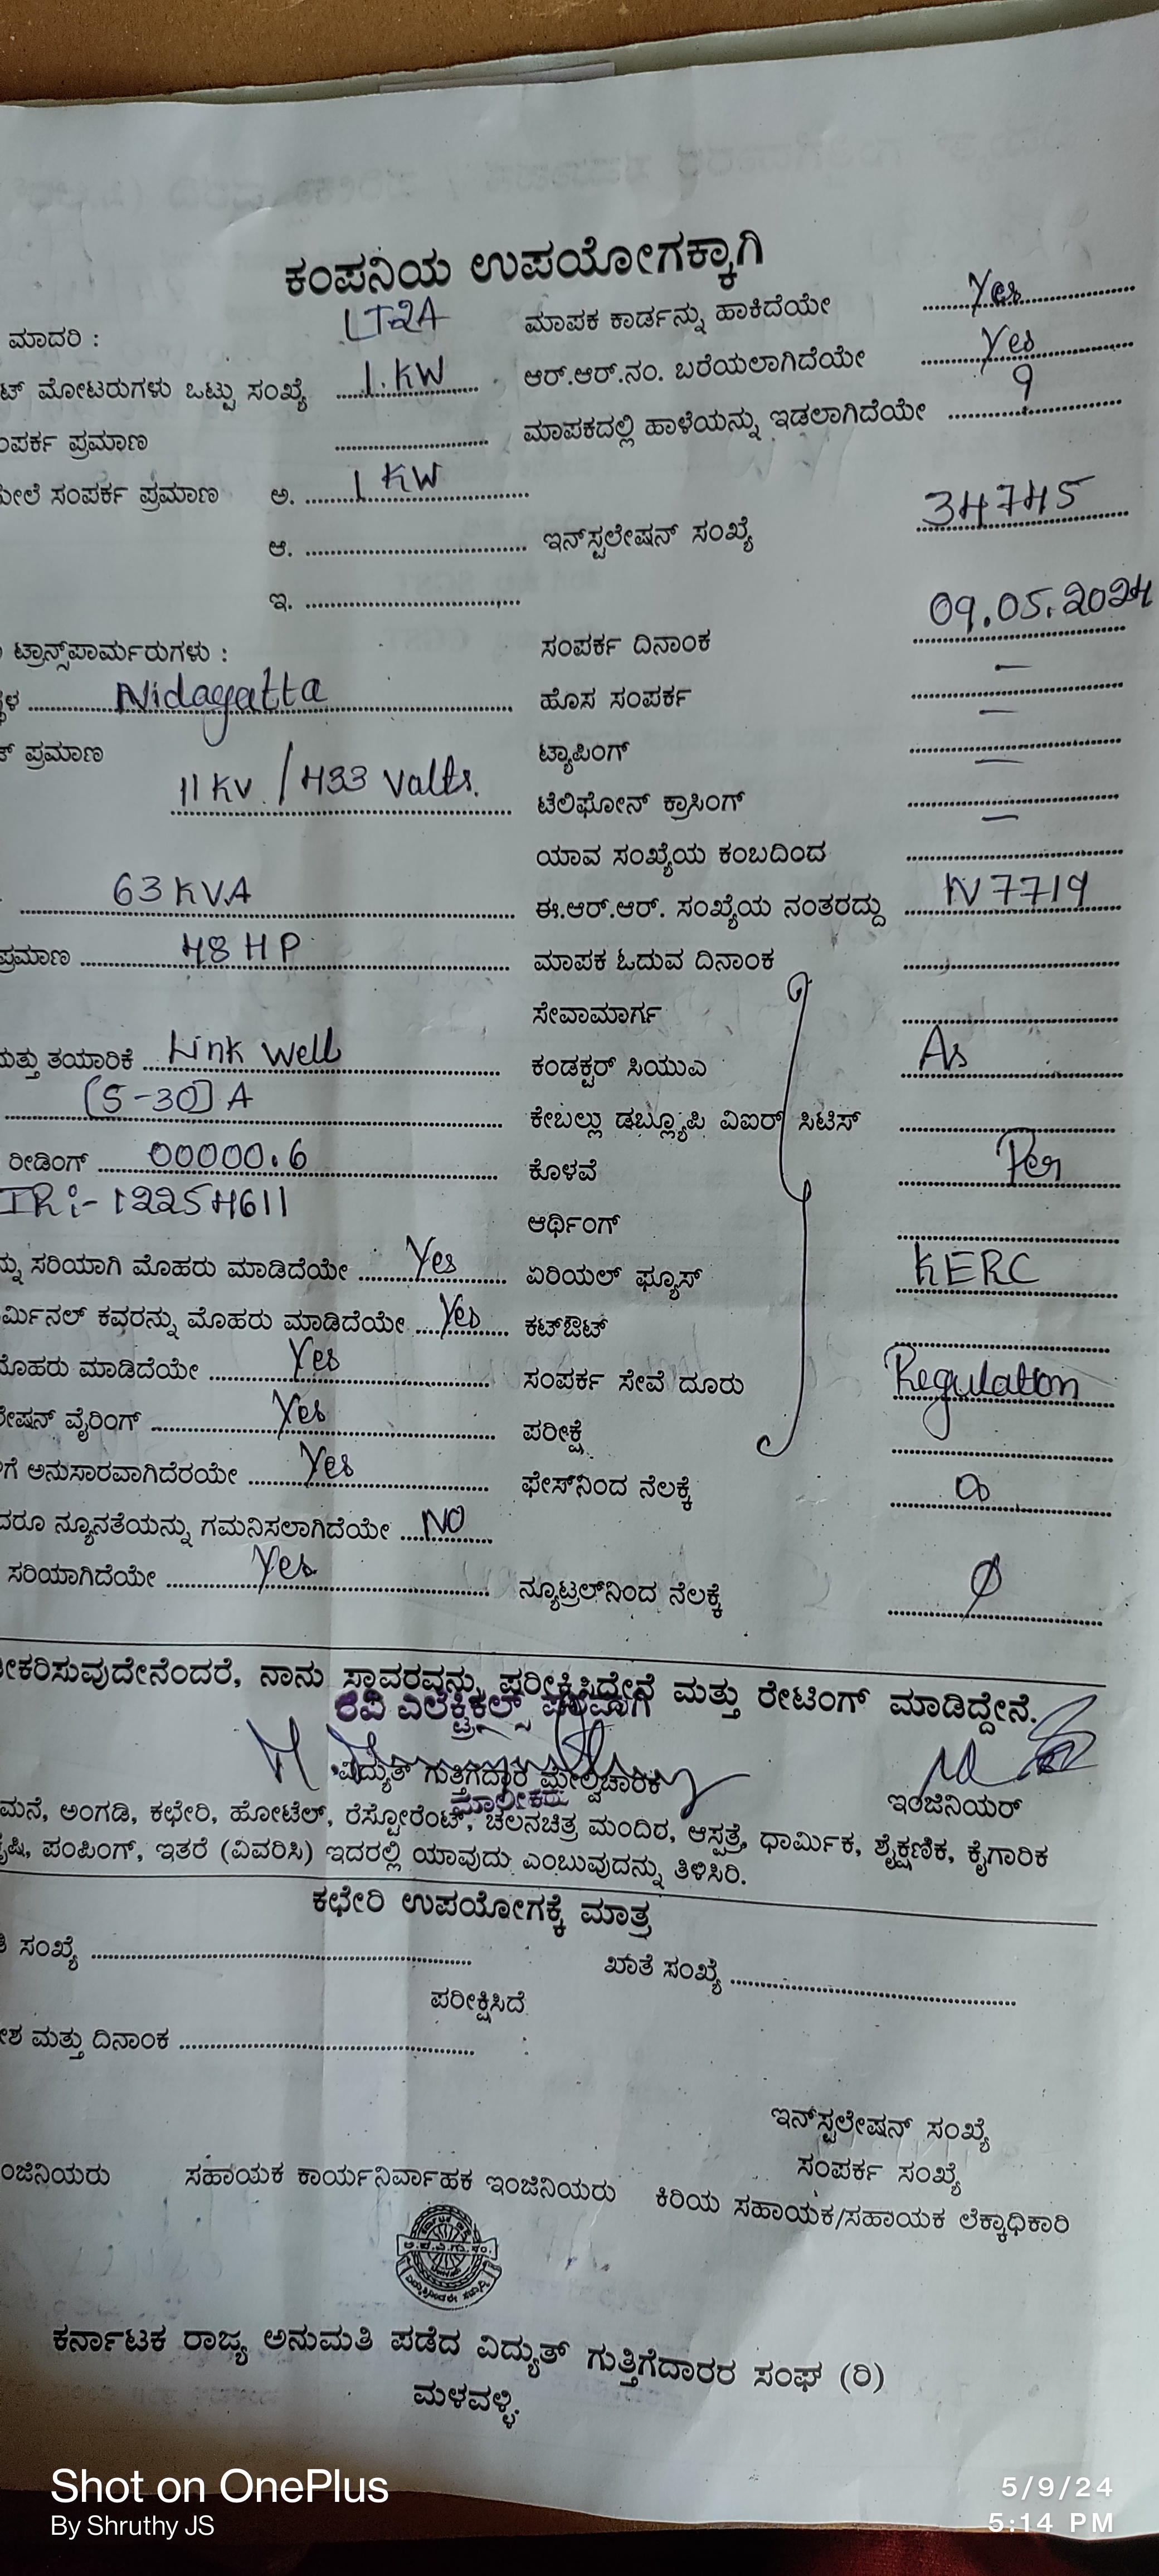 ಕಂಪನಿಯ ಉಪಯೋಗಕ್ಕಾಗಿ
ಮಾದರಿ : LT2A ಮಾಪಕ ಕಾರ್ಡನ್ನು ಹಾಕಿದೆಯೇ Yes
ಮೋಟರುಗಳು ಒಟ್ಟು ಸಂಖ್ಯೆ 1. KW ಆರ್.ಆರ್.ನಂ. ಬರೆಯಲಾಗಿದೆಯೇ Yes
ಪ್ರಮಾಣ ಮಾಪಕದಲ್ಲಿ ಹಾಳೆಯನ್ನು ಇಡಲಾಗಿದೆಯೇ
ಸಂಪರ್ಕ ಪ್ರಮಾಣ ಅ. 1 KW
ಆ. ಇನ್‌ಸ್ಟಲೇಷನ್ ಸಂಖ್ಯೆ 34745
ಇ.
ಟ್ರಾನ್ಸ್‌ಪಾರ್ಮರುಗಳು : ಸಂಪರ್ಕ ದಿನಾಂಕ 09.05.2024
Nidagatta ಹೊಸ ಸಂಪರ್ಕ —
ಪ್ರಮಾಣ ಟ್ಯಾಪಿಂಗ್ —
11 KV / 433 Valts. ಟೆಲಿಫೋನ್ ಕ್ರಾಸಿಂಗ್ —
ಯಾವ ಸಂಖ್ಯೆಯ ಕಂಬದಿಂದ —
63 KVA ಈ.ಆರ್.ಆರ್. ಸಂಖ್ಯೆಯ ನಂತರದ್ದು N 7719
ಪ್ರಮಾಣ 48 HP ಮಾಪಕ ಓದುವ ದಿನಾಂಕ
ಸೇವಾಮಾರ್ಗ
ತಯಾರಿಕೆ Link Well ಕಂಡಕ್ಟರ್ ಸಿಯುಎ As
(5-30) A ಕೇಬಲ್ಲು ಡಬ್ಲ್ಯೂಪಿ ವಿಐರ್ ಸಿಟಿಸ್
ರೀಡಿಂಗ್ 00000.6 ಕೊಳವೆ Per
IR:- 12254611 ಆರ್ಥಿಂಗ್
ಸರಿಯಾಗಿ ಮೊಹರು ಮಾಡಿದೆಯೇ Yes ಏರಿಯಲ್ ಫ್ಯೂಸ್ KERC
ಕವರನ್ನು ಮೊಹರು ಮಾಡಿದೆಯೇ Yes ಕಟ್‌ಔಟ್
ಮೊಹರು ಮಾಡಿದೆಯೇ Yes ಸಂಪರ್ಕ ಸೇವೆ ದೂರು Regulation
ವೈರಿಂಗ್ Yes ಪರೀಕ್ಷೆ
ಅನುಸಾರವಾಗಿದೆರಯೇ Yes ಫೇಸ್‌ನಿಂದ ನೆಲಕ್ಕೆ
ನ್ಯೂನತೆಯನ್ನು ಗಮನಿಸಲಾಗಿದೆಯೇ NO
ಸರಿಯಾಗಿದೆಯೇ Yes ನ್ಯೂಟ್ರಲ್‌ನಿಂದ ನೆಲಕ್ಕೆ
ನಾನು ಸ್ಥಾವರವನ್ನು ಪರೀಕ್ಷಿಸಿದ್ದೇನೆ ಮತ್ತು ರೇಟಿಂಗ್ ಮಾಡಿದ್ದೇನೆ.
ರವಿ ಎಲೆಕ್ಟ್ರಿಕಲ್ಸ್ ಪರವಾಗಿ
ವಿದ್ಯುತ್ ಗುತ್ತಿಗೆದಾರ ಮೇಲ್ವಿಚಾರಿಕ
ಮಾಲೀಕರು
ಇಂಜಿನಿಯರ್
ಮನೆ, ಅಂಗಡಿ, ಕಛೇರಿ, ಹೋಟೆಲ್, ರೆಸ್ಟೋರೆಂಟ್, ಚಲನಚಿತ್ರ ಮಂದಿರ, ಆಸ್ಪತ್ರೆ, ಧಾರ್ಮಿಕ, ಶೈಕ್ಷಣಿಕ, ಕೈಗಾರಿಕ
ಪಂಪಿಂಗ್, ಇತರೆ (ವಿವರಿಸಿ) ಇದರಲ್ಲಿ ಯಾವುದು ಎಂಬುವುದನ್ನು ತಿಳಿಸಿರಿ.
ಕಛೇರಿ ಉಪಯೋಗಕ್ಕೆ ಮಾತ್ರ
ಸಂಖ್ಯೆ ಖಾತೆ ಸಂಖ್ಯೆ
ಪರೀಕ್ಷಿಸಿದೆ
ಮತ್ತು ದಿನಾಂಕ :
ಇನ್‌ಸ್ಟಲೇಷನ್ ಸಂಖ್ಯೆ
ಸಂಪರ್ಕ ಸಂಖ್ಯೆ
ಸಹಾಯಕ ಕಾರ್ಯನಿರ್ವಾಹಕ ಇಂಜಿನಿಯರು ಕಿರಿಯ ಸಹಾಯಕ/ಸಹಾಯಕ ಲೆಕ್ಕಾಧಿಕಾರಿ
ಕರ್ನಾಟಕ ರಾಜ್ಯ ಅನುಮತಿ ಪಡೆದ ವಿದ್ಯುತ್ ಗುತ್ತಿಗೆದಾರರ ಸಂಘ (ರಿ)
ಮಳವಳ್ಳಿ.
Shot on OnePlus
By Shruthy JS
5/9/24
5:14 PM